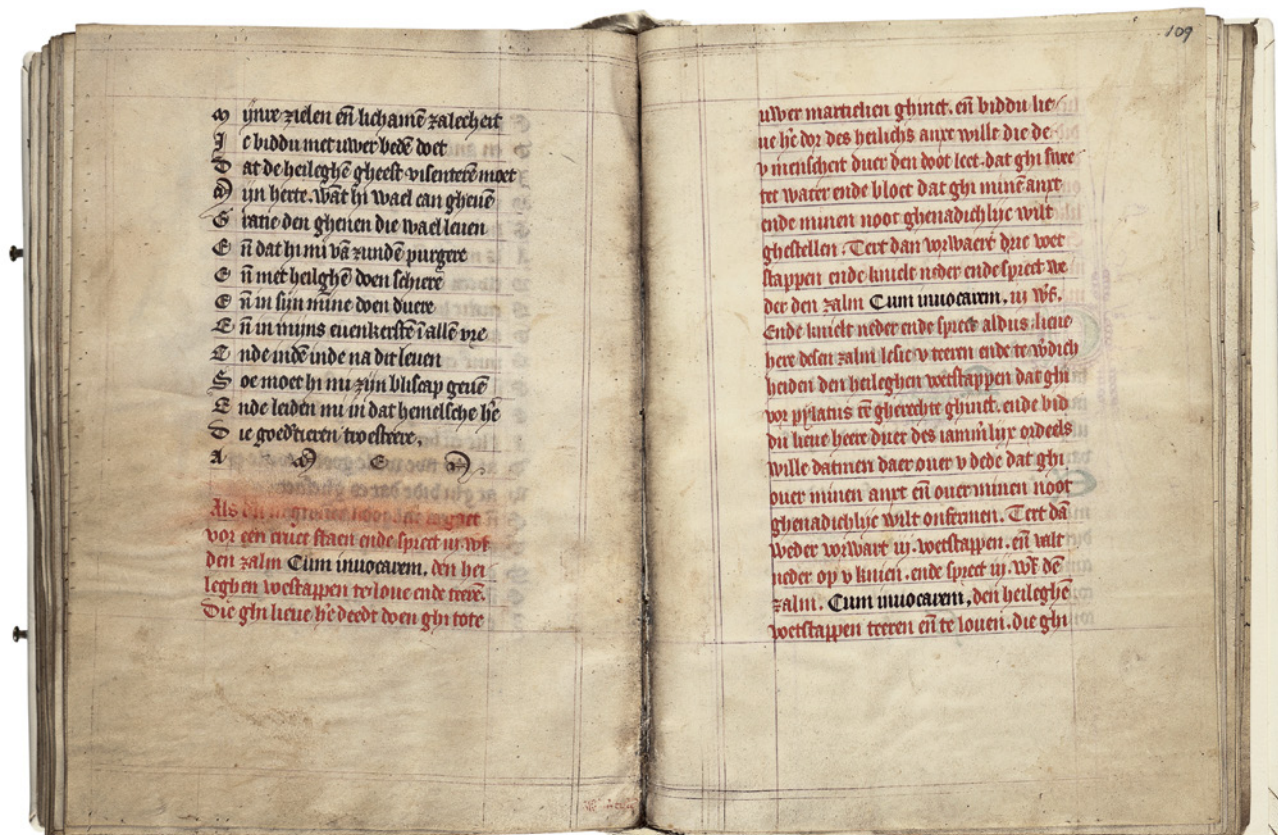 M ijnre zielen eñ lichamē zalecheit
I c biddu met uwer bedē doet
D at de heileghē gheest visenterē moet
M ijn herte. wāt hi wael can gheuē
G ratie den ghenen die wael leuen
E ñ dat hi mi vā zundē purgere
E ñ met heilghē doen schiere
E ñ in sijn mīne doen duere
E ñ in mijns euenkerstē ī allē vre
E nde indē inde na dit leuen
S oe moet hi mi zijn bliscap geuē
E nde leiden mi in dat hemelsche hē
D ie goedtieren troestere.
A M E M
Als du
vor een cruce staen ende sprect iij wf
den zalm Cum inuocarem. den hei
leghen voetstappen te loue ende teerē.
Die ghi lieue hē deedt doen ghi tote
109
uwer martielien ghinct. eñ biddu lie
ue hē dor des heilichs anxt wille die de
v menscheit duer den doot leet. dat ghi swee
tet water ende bloet dat ghi minē anxt
ende minen noot ghenadichlijc wilt
ghestellen. Tert dan vorwaert drie voet
stappen ende knielt neder ende sprect we
der den zalm Cum inuocarem. iij wf.
Ende knielt neder ende sprect aldus. lieue
here desen zalm lesic v teeren ende te wdich
heiden den heileghen voetstappen dat ghi
vor pylatus tē gherechte ghinct. ende bid
du lieue heere duer des iammlijx ordeels
wille datmen daer ouer v dede dat ghi
ouer minen anxt eñ ouer minen noot
ghenadichlijc wilt onfermen. Tert dā
weder vorwart iij. voetstappen. eñ valt
neder op v knien. ende sprect iij. wf dē
zalm. Cum inuocarem, den heileghē
voetstappen teeren eñ te louen. die ghi